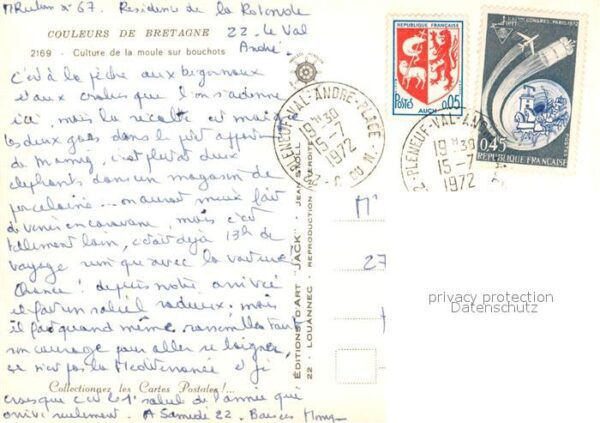 n° 67. Residence de la Rotonde
22 - Le Val
André
COULEURS DE BRETAGNE
2169 - Culture de la moule sur bouchots
c'est à la pêche aux bigorneaux
et aux crabes que l'on s'adonne
ici, mais la récolte est maigre
les deux gars dans le petit appart
de Mamig, c'est plutot deux
elephants dans un magasin de
porcelaine... on aurait mieux fait
de venir en caravane, mais c'est
tellement loin, c'etait déjà 13h de
voyage rien que avec la voiture
Chance! depuis notre arrivée
il fait un soleil radieux; mais
il faut quand même rassembler tout
son courage pour aller se baigner,
ce n'est pas la Mediterranée et je
crois que c'est le 1er soleil de l'année que
arrive seulement. A Samedi 22 - Baisers
Collectionnez les Cartes Postales!...
ÉDITIONS D'ART "JACK"
22 - LOUANNEC - REPRODUCTION INTERDITE
JEAN STOLL
REPUBLIQUE FRANÇAISE
POSTES
AUCH
0,05
CONGRES PARIS 1972
0,45
REPUBLIQUE FRANÇAISE
PLENEUF-VAL-ANDRE-PLACE
19H30
15-7
1972
PLENEUF-VAL-ANDRE
19H30
15-7
1972
M
27
privacy protection
Datenschutz